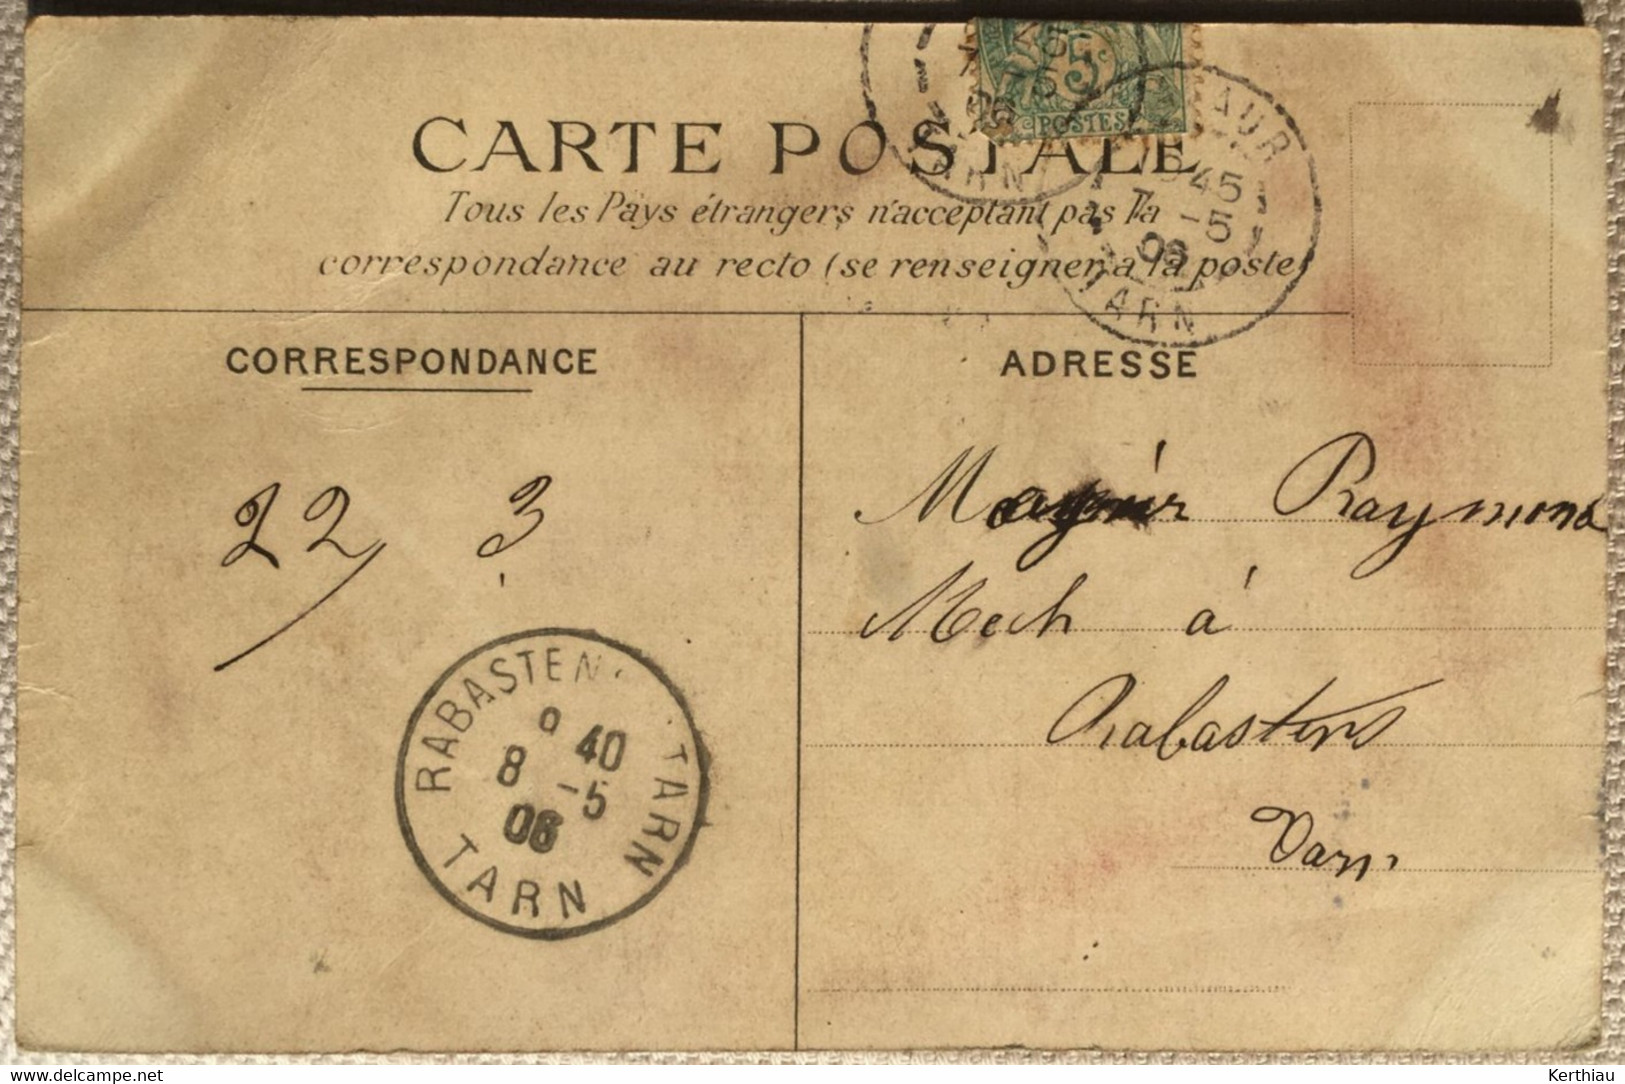 5c
POSTES
CARTE POSTALE
Tous les Pays étrangers n'acceptant pas la
correspondance au recto (se renseigner a la poste)
AUR
45
7 -5
06
TARN
CORRESPONDANCE
ADRESSE
22 3
Raymond
Mech à
Rabastens
Tarn
RABASTENS
8 40
8 -5
06
TARN
TARN
Kerthiau